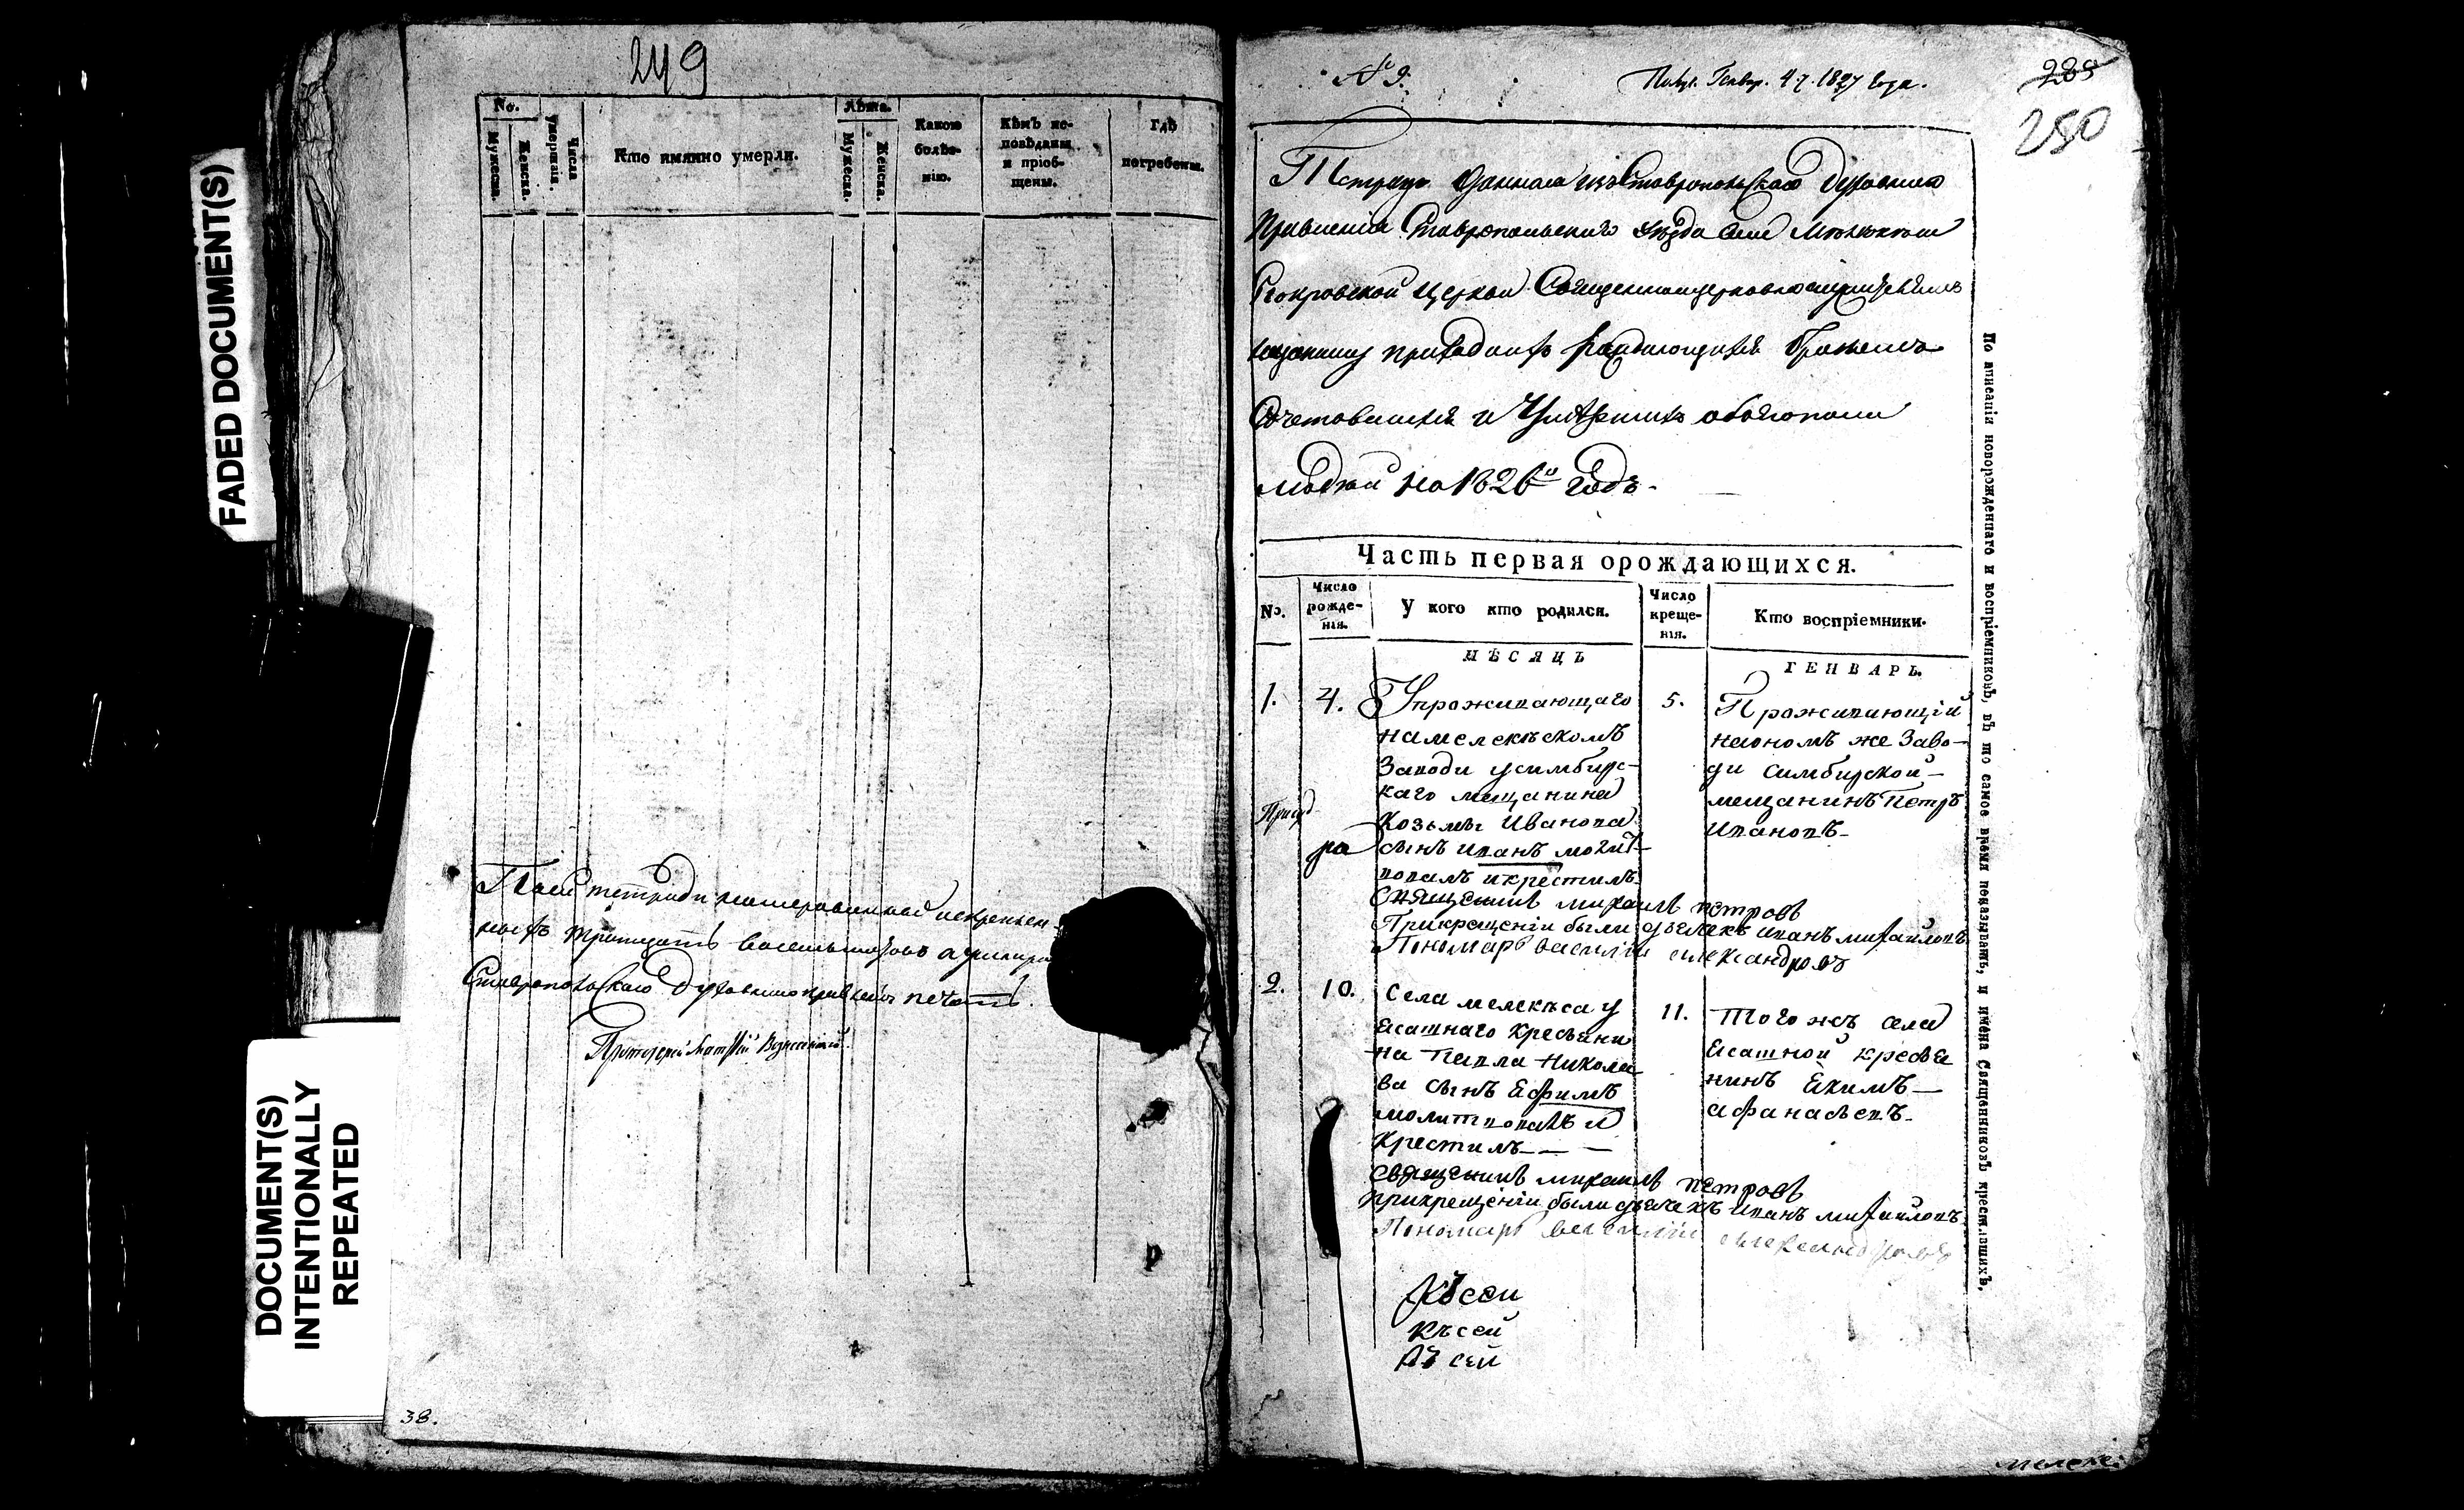 FADED DOCUMENT(S)
DOCUMENT(S)
INTENTIONALLY
REPEATED
249
No.
Мужеска.
Женска.
Числа
умершія.
Кто имянно умерли.
Лѣта.
Мужеска.
Женска.
Какою
болѣз-
нію.
Кѣмъ ис-
повѣданы
и пріоб-
щены.
Гдѣ
погребены.
тетради
тритцать
Ставропольскаго Духовнаго правленія печать.
Протоіерей
38.
№ 9.
Получ. Генвар. 4 1827 года.
285
250
Тетрадь данная изъ Ставропольскаго Духовнаго
Правленія Ставропольскаго уѣзда села
Покровской церкви
приходѣ раждающихся бракомъ
сочетавшихся и умершихъ обоего пола
людей на 1826й годъ.
Часть первая орождающихся.
No.
Число
рожде-
нія.
У кого кто родился.
Число
креще-
нія.
Кто воспріемники.
МѢСЯЦЪ
ГЕНВАРЬ.
1.
4.
Упроживающаго
намелекѣскомъ
Заводи усимбирс-
каго мещанина
Козьмы Иванова
сынъ иванъ молит-
вовалъ икрестилъ
Священникъ михаилъ петровъ
Прикрещеніи были дьячекъ иванъ михайловъ
Пономарь василій александровъ
5.
Проживающій
наономъ же Заво-
ди симбирской
мещанинъ Петръ
ивановъ
2.
10.
Села мелекѣса у
Ясашнаго кресьяни
на павла Никола
ва сынъ Ефимъ
молитвовалъ и
крестилъ
священникъ михаилъ петровъ
прикрещеніи были дьячекъ иванъ михайловъ
Пономарь василій александровъ
11.
Того жъ села
Ясашной кресья
нинъ Екимъ
афанасьевъ
Къ сей
къ сей
къ сей
По вписаніи новорожденнаго и воспріемниковъ, въ то самое время показывать, и имена Священниковъ крестившихъ.